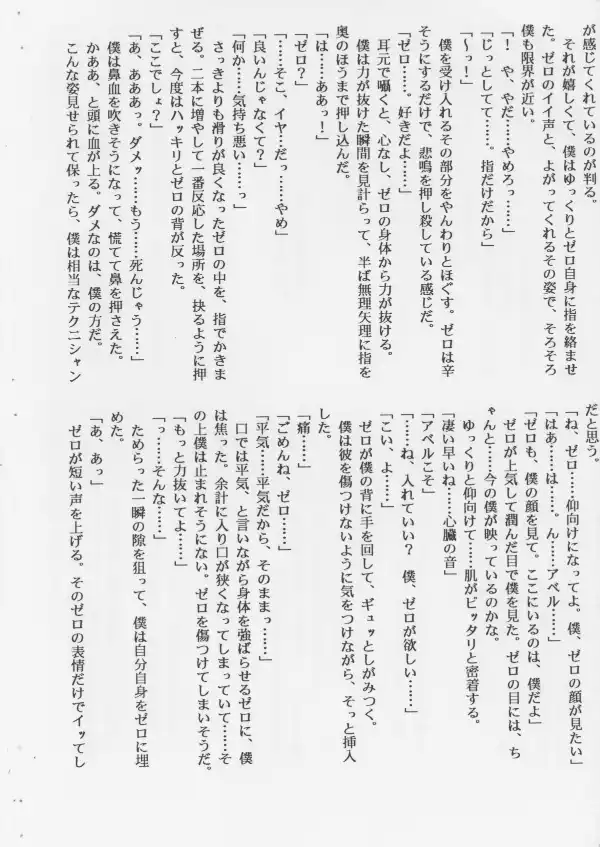 が感じてくれているのが判る。
　それが嬉しくて、僕はゆっくりとゼロ自身に指を絡ませ
た。ゼロのイイ声と、よがってくれるその姿で、そろそろ
僕も限界が近い。
「！　や、やだ……やめろっ……」
「じっとしてて……。指だけだから」
「～っ！」
　僕を受け入れるその部分をやんわりとほぐす。ゼロは辛
そうにするだけで、悲鳴を押し殺している感じだ。
「ゼロ……。好きだよ……」
　耳元で囁くと、心なし、ゼロの身体から力が抜ける。
　僕は力が抜けた瞬間を見計らって、半ば無理矢理に指を
奥のほうまで押し込んだ。
「は……ああっ！」
「ゼロ？」
「……そこ、イヤ…だっ……やめ」
「良いんじゃなくて？」
「何か……気持ち悪い……っ」
　さっきよりも滑りが良くなったゼロの中を、指でかきま
ぜる。二本に増やして一番反応した場所を、抉るように押
すと、今度はハッキリとゼロの背が反った。
「ここでしょ？」
「あ、あああっ。ダメッ……もう……死んじゃう……」
　僕は鼻血を吹きそうになって、慌てて鼻を押さえた。
かああ、と頭に血が上る。ダメなのは、僕の方だ。
こんな姿見せられて保ったら、僕は相当なテクニシャン
だと思う。
「ね、ゼロ……仰向けになってよ。僕、ゼロの顔が見たい」
「はあ……は……。ん……アベル……」
「ゼロも、僕の顔を見て。ここにいるのは、僕だよ」
　ゼロが上気して潤んだ目で僕を見た。ゼロの目には、ち
ゃんと……今の僕が映っているのかな。
　ゆっくりと仰向けて……肌がピッタリと密着する。
「凄い早いね……心臓の音」
「アベルこそ」
「……ね、入れていい？　僕、ゼロが欲しい……」
「こい、よ……」
　ゼロが僕の背に手を回して、ギュッとしがみつく。
　僕は彼を傷つけないように気をつけながら、そっと挿入
した。
「痛……」
「ごめんね、ゼロ……」
「平気……平気だから、そのままっ……」
　口では平気、と言いながら身体を強ばらせるゼロに、僕
は焦った。余計に入り口が狭くなってしまっていて……そ
の上僕は止まれそうにない。ゼロを傷つけてしまいそうだ。
「もっと力抜いてよ……」
「っ……そんな……」
　ためらった一瞬の隙を狙って、僕は自分自身をゼロに埋
めた。
「あ、あっ」
　ゼロが短い声を上げる。そのゼロの表情だけでイッてし